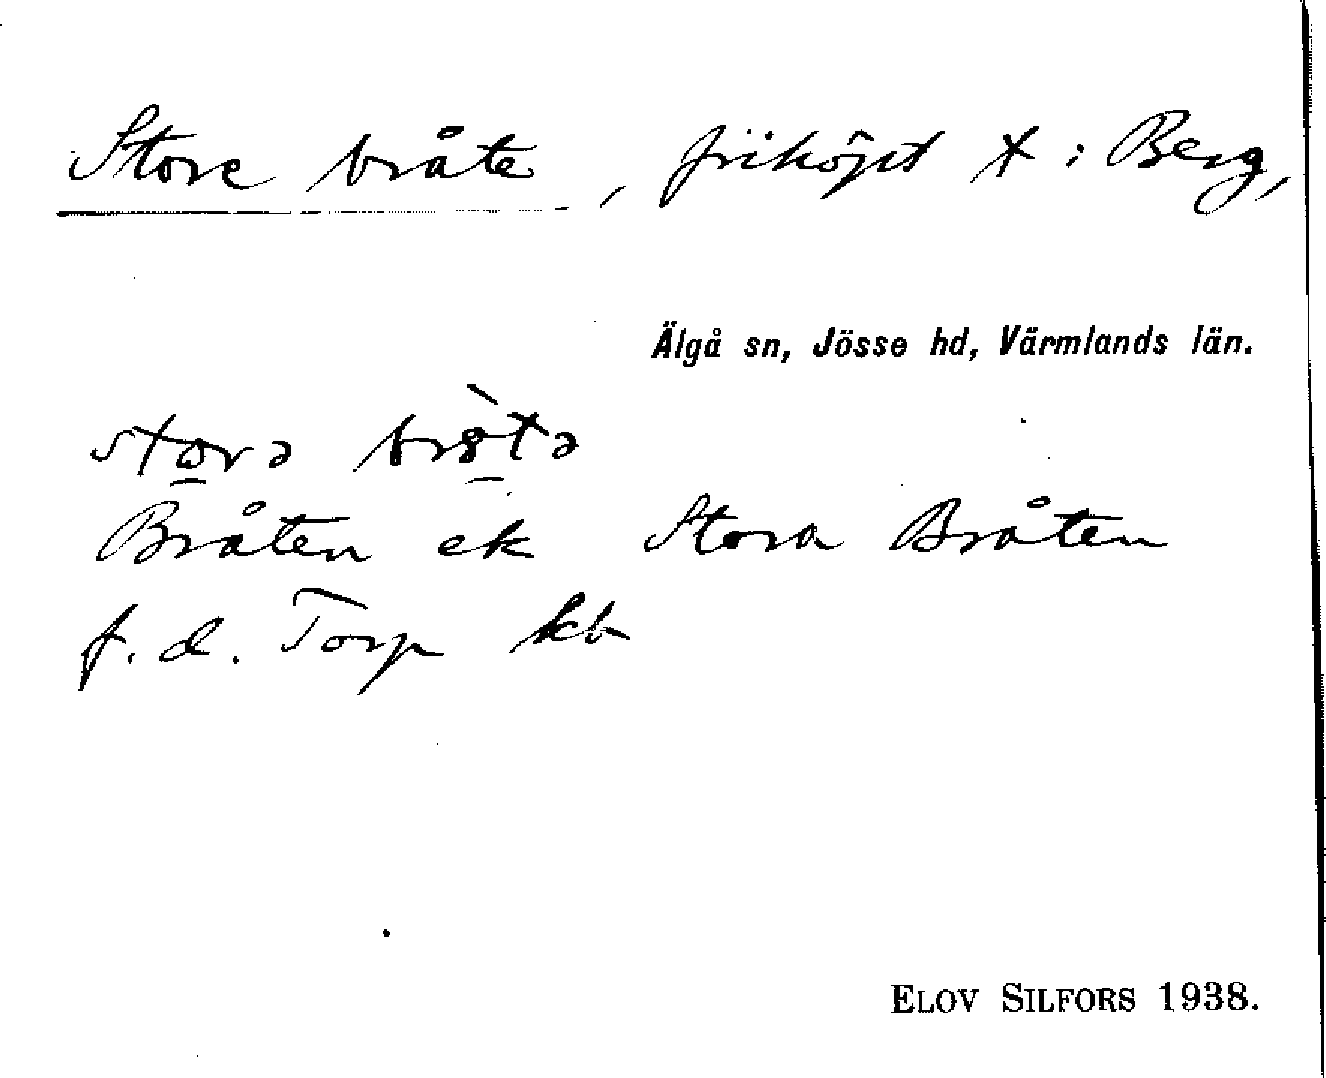 Store bråte, friköpt t i Berg,
Älgå sn, Jösse hd, Värmlands län.
Bråten ek Stora Bråten
f. d. Torp kb
ELOV SILFORS 1938.